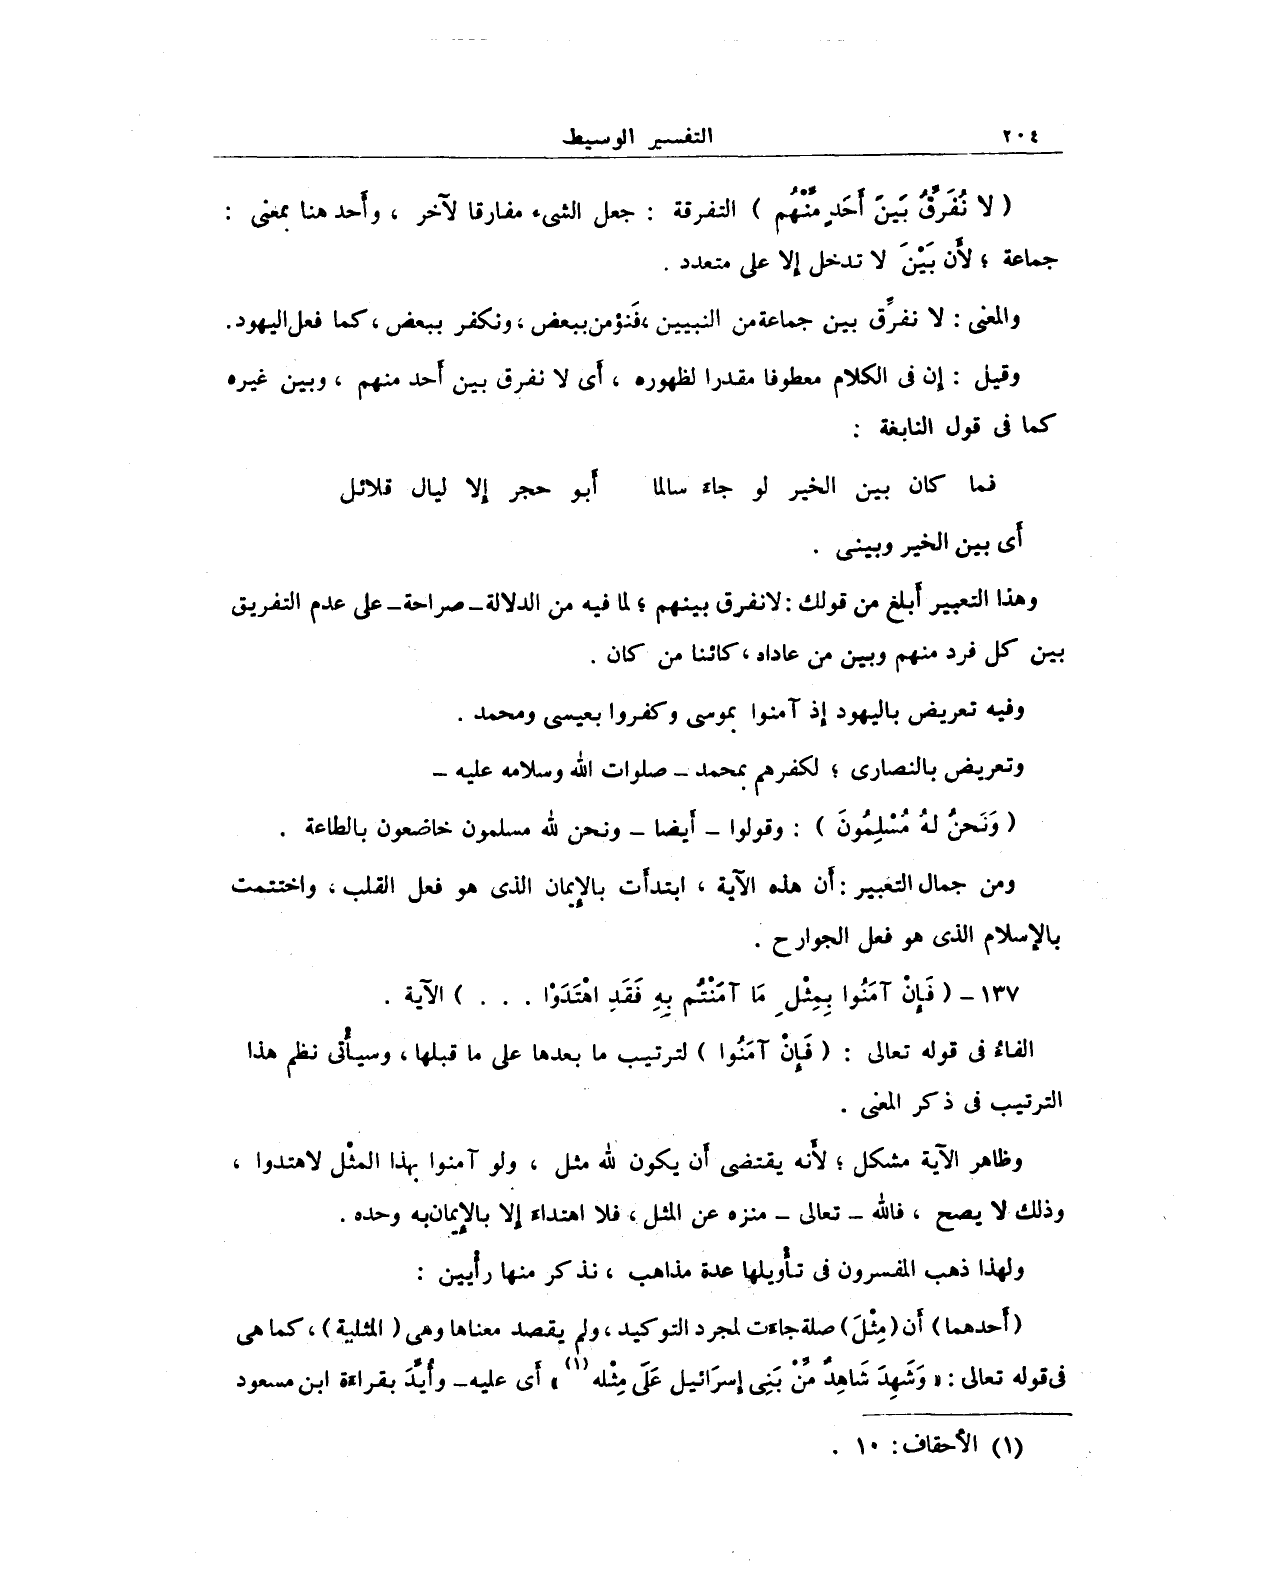 ٢٠٤ التفسير الوسيط
( لا نُفَرِّقُ بَيْنَ أَحَدٍ مِّنْهُم ) التفرقة : جعل الشىء مفارقا لآخر ، وأحد هنا بمعنى :
جماعة ؛ لأن بَيْنَ لا تدخل إلا على متعدد .
والمعنى : لا نفرِّق بين جماعة من النبيين ، فَنؤمن ببعض ، ونكفر ببعض ، كما فعل اليهود .
وقيل : إن فى الكلام معطوفا مقدرا لظهوره ، أى لا نفرق بين أحد منهم ، وبين غيره
كما فى قول النابغة :
فما كان بين الخير لو جاءَ سالما أبو حجر إلا ليال قلائل
أى بين الخير وبينى .
وهذا التعبير أبلغ من قولك : لانفرق بينهم ؛ لما فيه من الدلالة - صراحة - على عدم التفريق
بين كل فرد منهم وبين من عاداه ، كائنا من كان .
وفيه تعريض باليهود إذ آمنوا بموسى وكفروا بعيسى ومحمد .
وتعريض بالنصارى ؛ لكفرهم بمحمد - صلوات الله وسلامه عليه -
( وَنَحنُ لهُ مُسْلِمُونَ ) : وقولوا - أيضا - ونحن لله مسلمون خاضعون بالطاعة .
ومن جمال التعبير : أن هذه الآية ، ابتدأت بالإيمان الذى هو فعل القلب ، واختتمت
بالإسلام الذى هو فعل الجوارح .
١٣٧ - ( فَإِنْ آمَنُوا بِمِثْلِ مَا آمَنْتُم بِهِ فَقَدِ اهْتَدَوْا . . . ) الآية .
الفاءُ فى قوله تعالى : ( فَإِنْ آمَنُوا ) لترتيب ما بعدها على ما قبلها ، وسيأْتى نظم هذا
الترتيب فى ذكر المعنى .
وظاهر الآية مشكل ؛ لأنه يقتضى أن يكون لله مثل ، ولو آمنوا بهذا المثْل لاهتدوا ،
وذلك لا يصح ، فالله - تعالى - منزه عن المثل ، فلا اهتداءَ إلا بالإيمان به وحده .
ولهذا ذهب المفسرون فى تأْويلها عدة مذاهب ، نذكر منها رأيين :
(أحدهما) أن (مِثْلَ) صلة جاءَت لمجرد التوكيد ، ولم يقصد معناها وهى (المثلية) ، كما هى
فى قوله تعالى : « وَشَهِدَ شَاهِدٌ مِّنْ بَنِى إسرَائيل عَلَى مِثْله (١) » أى عليه - وأُيِّدَ بقراءة ابن مسعود
(١) الأحقاف : ١٠ .